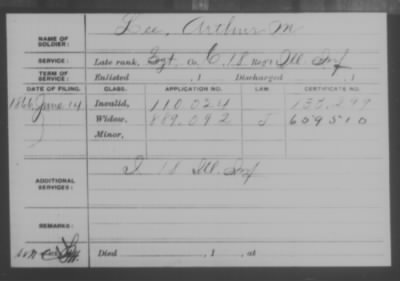 NAME OF SOLDIER: Lee, Arthur M
SERVICE: Late rank, Sgt. Co. C, 18 Reg't Ill Inf
TERM OF SERVICE: Enlisted , 1 Discharged , 1
DATE OF FILING. CLASS. APPLICATION NO. LAW. CERTIFICATE NO.
1866 June 14 Invalid, 110.024 137.299
Widow, 889.092 J 659510
Minor,
ADDITIONAL SERVICES: I 18 Ill. Inf
REMARKS:
Died , 1 , at